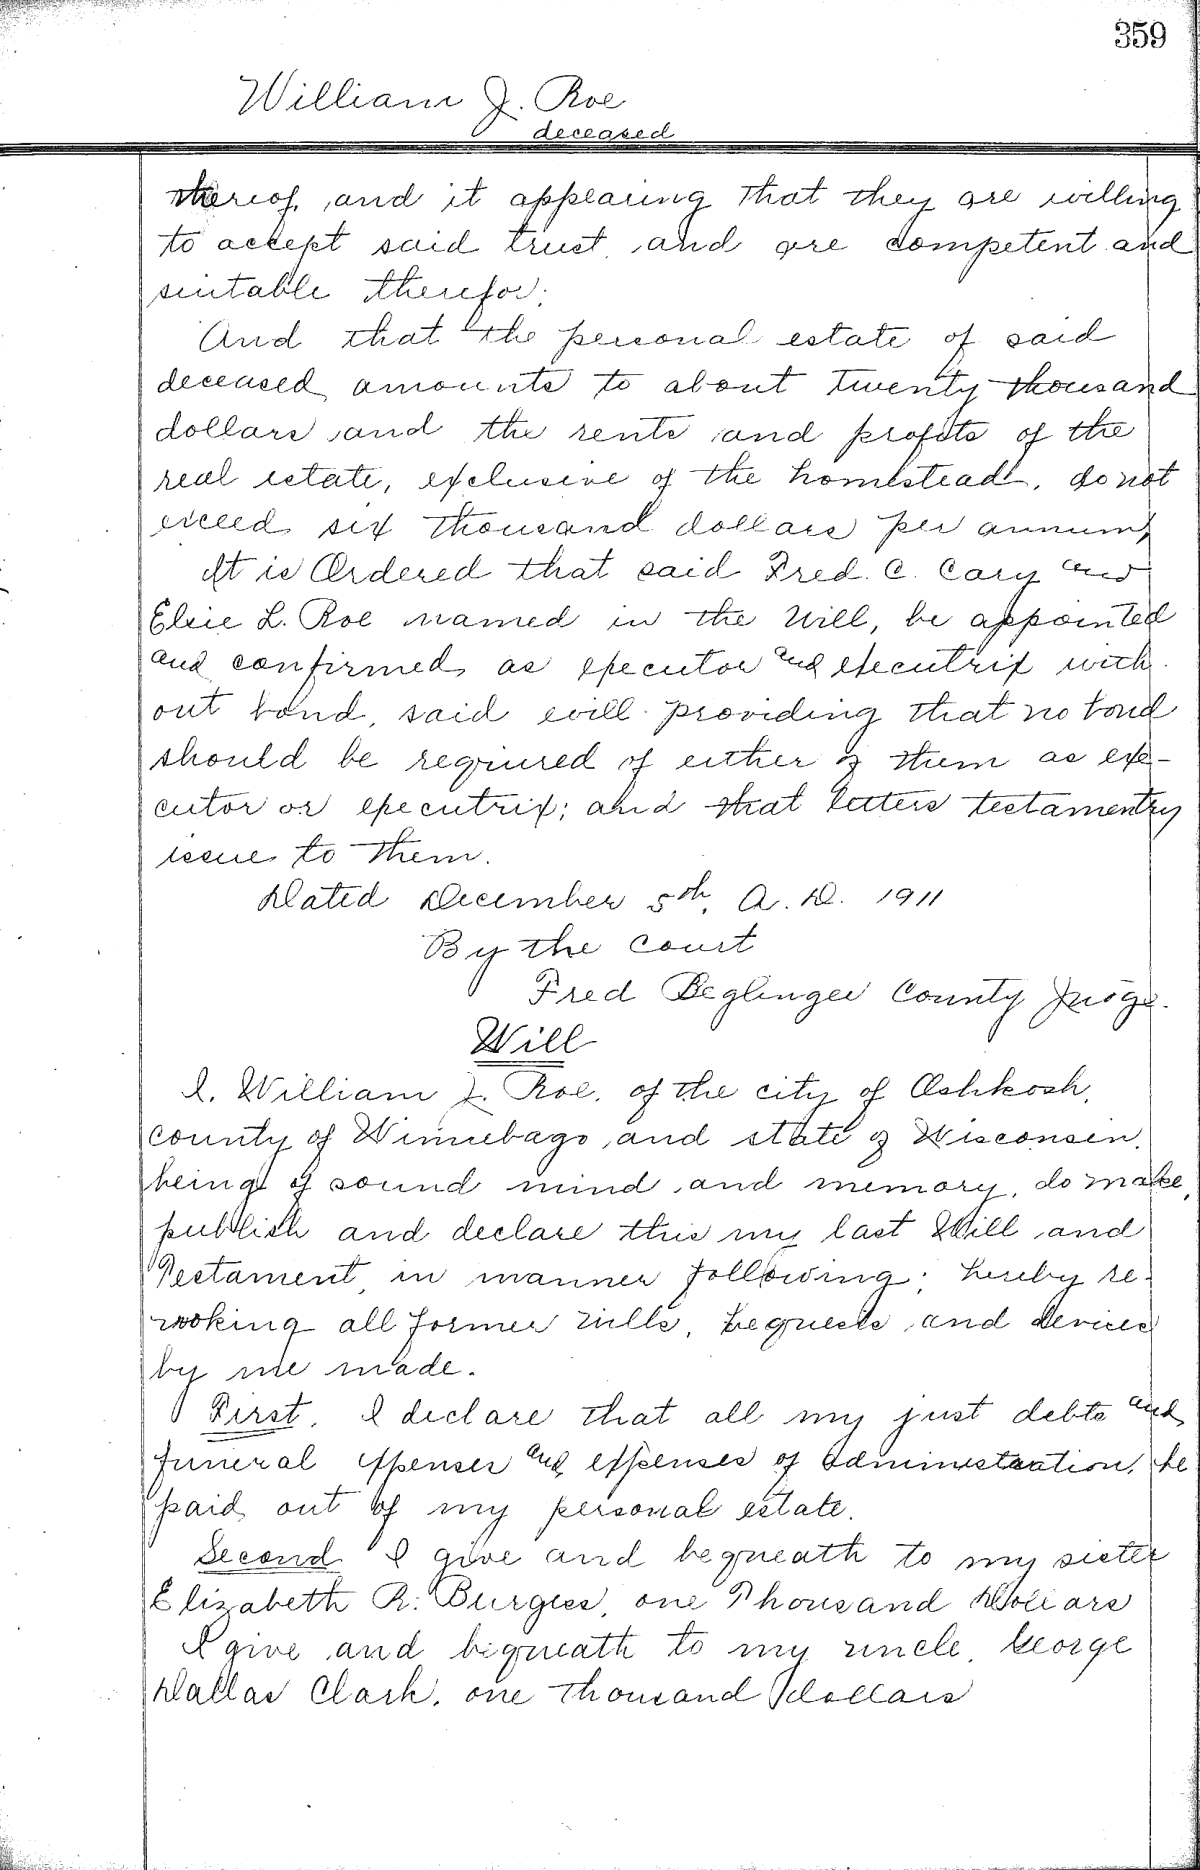 359
William J. Roe
deceased
thereof, and it appearing that they are willing
to accept said trust, and are competent and
suitable therefor;
And that the personal estate of said
deceased amounts to about twenty thousand
dollars and the rents and profits of the
real estate, exclusive of the homestead, do not
exceed six thousand dollars per annum,
It is Ordered that said Fred. C. Cary and
Elsie L. Roe named in the Will, be appointed
and confirmed as executor and executrix with-
out bond, said will providing that no bond
should be required of either of them as exe-
cutor or executrix; and that letters testamentry
issue to them.
Dated December 5th, A. D. 1911
By the Court
Fred Beglinger County Judge.
Will
I, William J. Roe, of the city of Oshkosh,
County of Winnebago, and state of Wisconsin,
being of sound mind and memory, do make,
publish and declare this my last Will and
Testament, in manner following; hereby re-
voking all former wills, bequests, and devices
by me made.
First. I declare that all my just debts and
funeral expenses and expenses of administration, be
paid out of my personal estate.
Second I give and bequeath to my sister
Elizabeth R. Burgess, one Thousand Dollars
I give and bequeath to my uncle, George
Dallas Clark, one thousand dollars